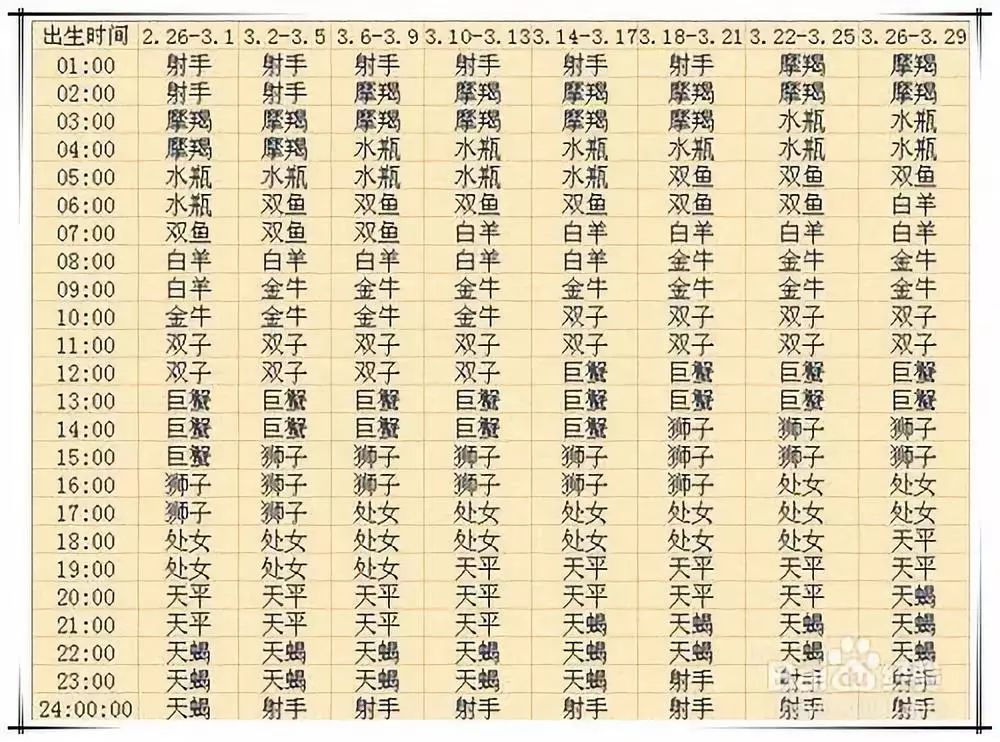 出生时间 2.26-3.1 3.2-3.5 3.6-3.9 3.10-3.13 3.14-3.17 3.18-3.21 3.22-3.25 3.26-3.29
01:00 射手 射手 射手 射手 射手 射手 摩羯 摩羯
02:00 射手 射手 摩羯 摩羯 摩羯 摩羯 摩羯 摩羯
03:00 摩羯 摩羯 摩羯 摩羯 摩羯 摩羯 水瓶 水瓶
04:00 摩羯 摩羯 水瓶 水瓶 水瓶 水瓶 水瓶 水瓶
05:00 水瓶 水瓶 水瓶 水瓶 水瓶 双鱼 双鱼 双鱼
06:00 水瓶 双鱼 双鱼 双鱼 双鱼 双鱼 双鱼 白羊
07:00 双鱼 双鱼 双鱼 白羊 白羊 白羊 白羊 白羊
08:00 白羊 白羊 白羊 白羊 白羊 金牛 金牛 金牛
09:00 白羊 金牛 金牛 金牛 金牛 金牛 金牛 金牛
10:00 金牛 金牛 金牛 金牛 双子 双子 双子 双子
11:00 双子 双子 双子 双子 双子 双子 双子 双子
12:00 双子 双子 双子 双子 巨蟹 巨蟹 巨蟹 巨蟹
13:00 巨蟹 巨蟹 巨蟹 巨蟹 巨蟹 巨蟹 巨蟹 巨蟹
14:00 巨蟹 巨蟹 巨蟹 巨蟹 巨蟹 狮子 狮子 狮子
15:00 巨蟹 狮子 狮子 狮子 狮子 狮子 狮子 狮子
16:00 狮子 狮子 狮子 狮子 狮子 狮子 处女 处女
17:00 狮子 狮子 处女 处女 处女 处女 处女 处女
18:00 处女 处女 处女 处女 处女 处女 处女 天平
19:00 处女 处女 处女 天平 天平 天平 天平 天平
20:00 天平 天平 天平 天平 天平 天平 天平 天蝎
21:00 天平 天平 天平 天平 天蝎 天蝎 天蝎 天蝎
22:00 天蝎 天蝎 天蝎 天蝎 天蝎 天蝎 天蝎 天蝎
23:00 天蝎 天蝎 天蝎 天蝎 天蝎 射手 射手 射手
24:00:00 天蝎 射手 射手 射手 射手 射手 射手 射手